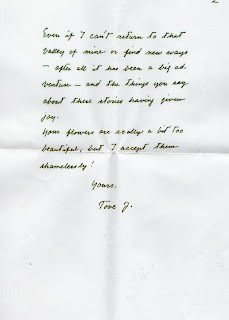 2
Even if I can't return to that
Valley of mine or find new ways
– after all it has been a big ad-
venture – and the things you say
about these stories having given
joy.
Your flowers are really a bit too
beautiful, but I accept them
shamelessly!
Yours,
Tove J.